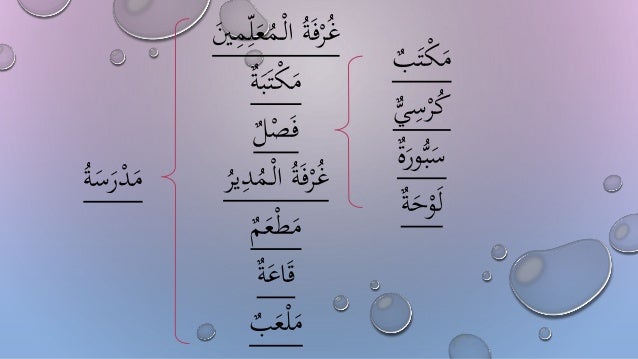 مَكْتَبٌ
كُرْسِيٌّ
سَبُّورَةٌ
لَوْحَةٌ
غُرْفَةُ الْمُعَلِّمِينَ
مَكْتَبَةٌ
فَصْلٌ
غُرْفَةُ الْمُدِيرُ
مَطْعَمٌ
قَاعَةٌ
مَلْعَبٌ
مَدْرَسَةُ